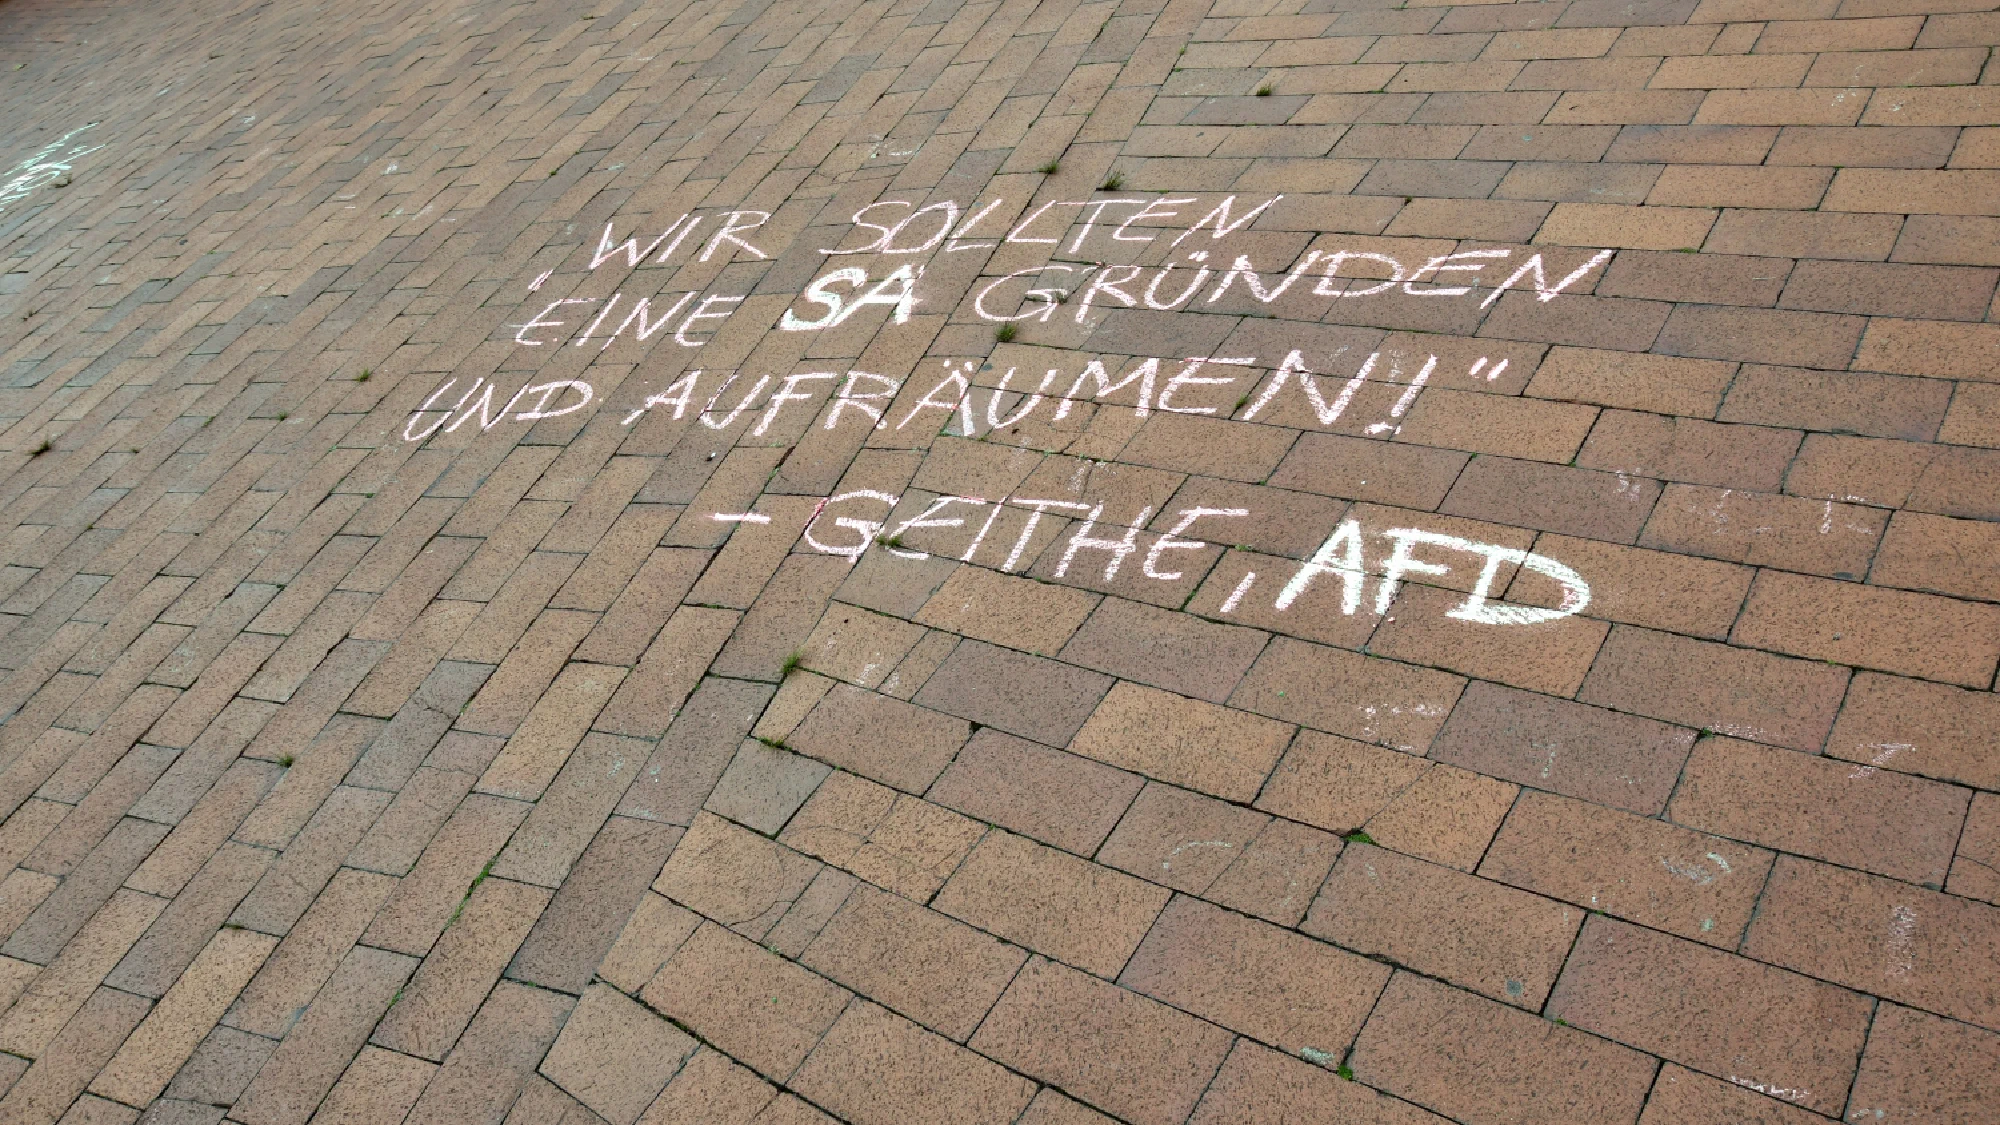 „WIR SOLLTEN
EINE SA GRÜNDEN
UND AUFRÄUMEN!"
- GEITHE, AFD